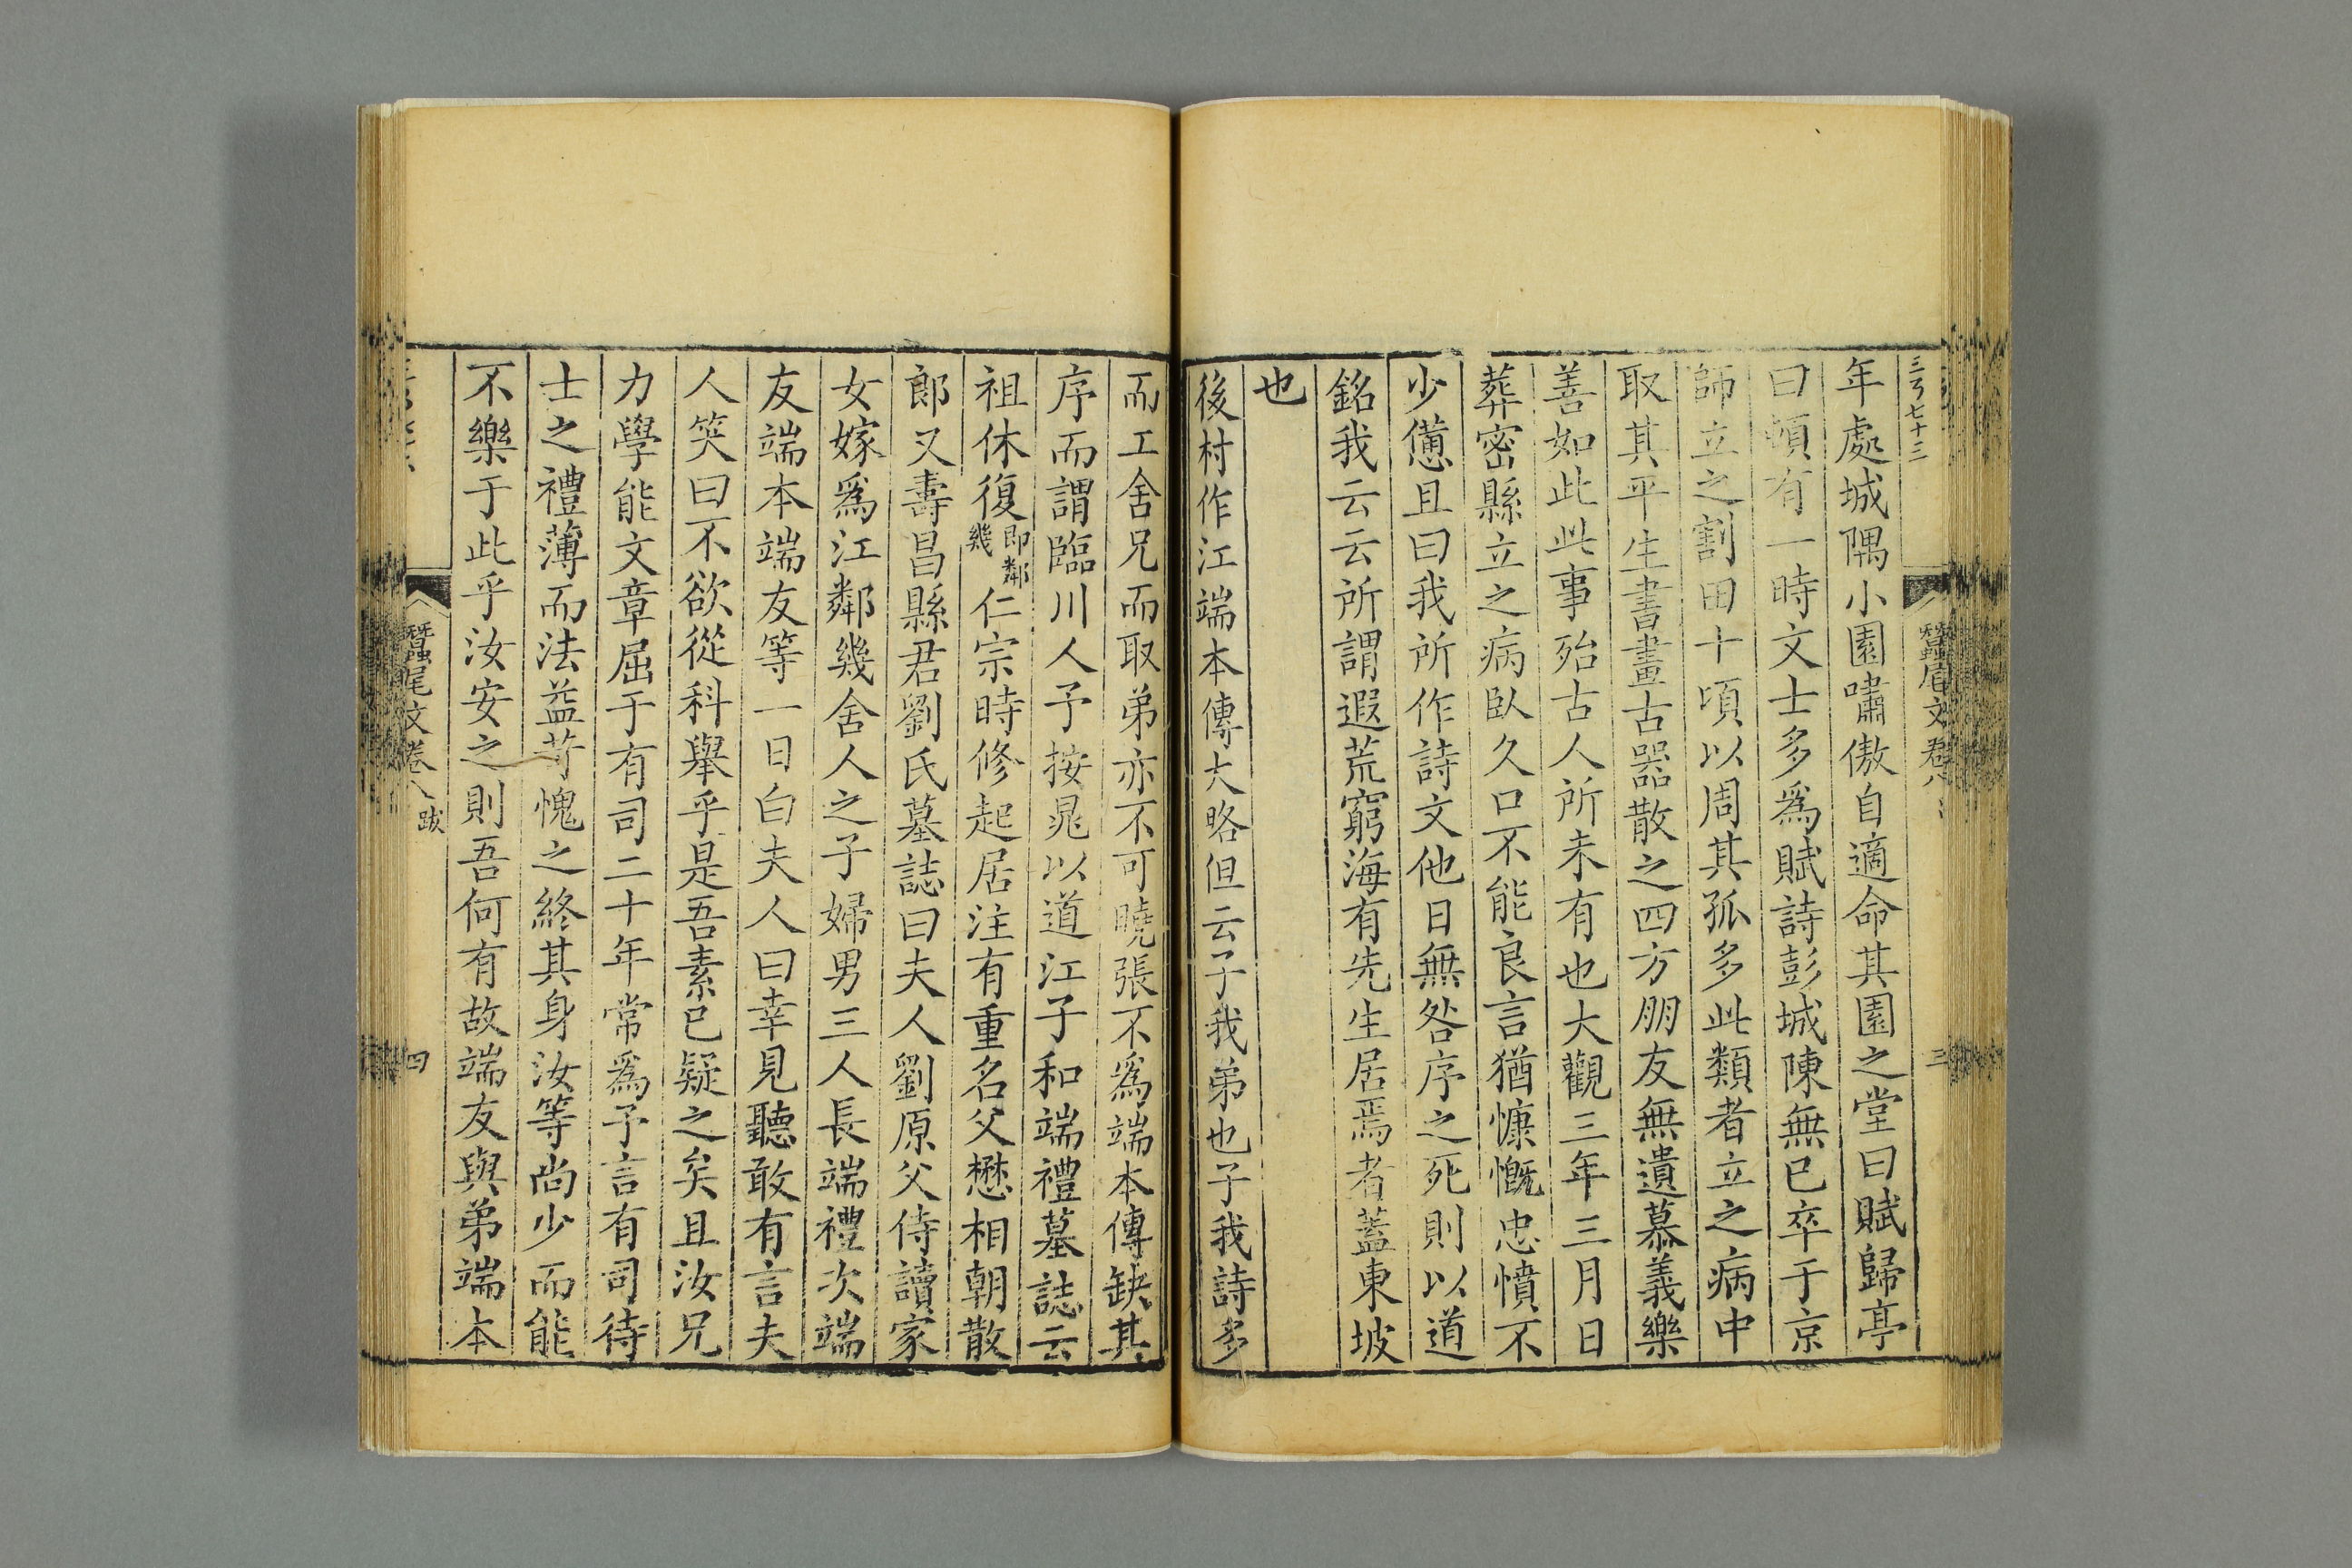 三弓七十三
蠶尾文卷八
三
年處城隅小園嘯傲自適命其園之堂曰賦歸亭
曰頓有一時文士多爲賦詩彭城陳無已卒于京
師立之割田十頃以周其孤多此類者立之病中
取其平生書畫古器散之四方朋友無遺慕義樂
善如此此事殆古人所未有也大觀三年三月日
葬密縣立之病臥久口不能良言猶慷慨忠憤不
少憊且曰我所作詩文他日無咎序之死則以道
銘我云云所謂遐荒窮海有先生居焉者蓋東坡
也
後村作江端本傳大略但云子我弟也子我詩多
而工舍兄而取弟亦不可曉張不爲端本傳缺其
序而謂臨川人予按晁以道江子和端禮墓誌云
祖休復即鄰幾仁宗時修起居注有重名父懋相朝散
郎又壽昌縣君劉氏墓誌曰夫人劉原父侍讀家
女嫁爲江鄰幾舍人之子婦男三人長端禮次端
友端本端友等一日白夫人曰幸見聽敢有言夫
人笑曰不欲從科舉乎是吾素已疑之矣且汝兄
力學能文章屈于有司二十年常爲予言有司待
士之禮薄而法益苛愧之終其身汝等尚少而能
不樂于此乎汝安之則吾何有故端友與弟端本
蠶尾文卷八
跋
四